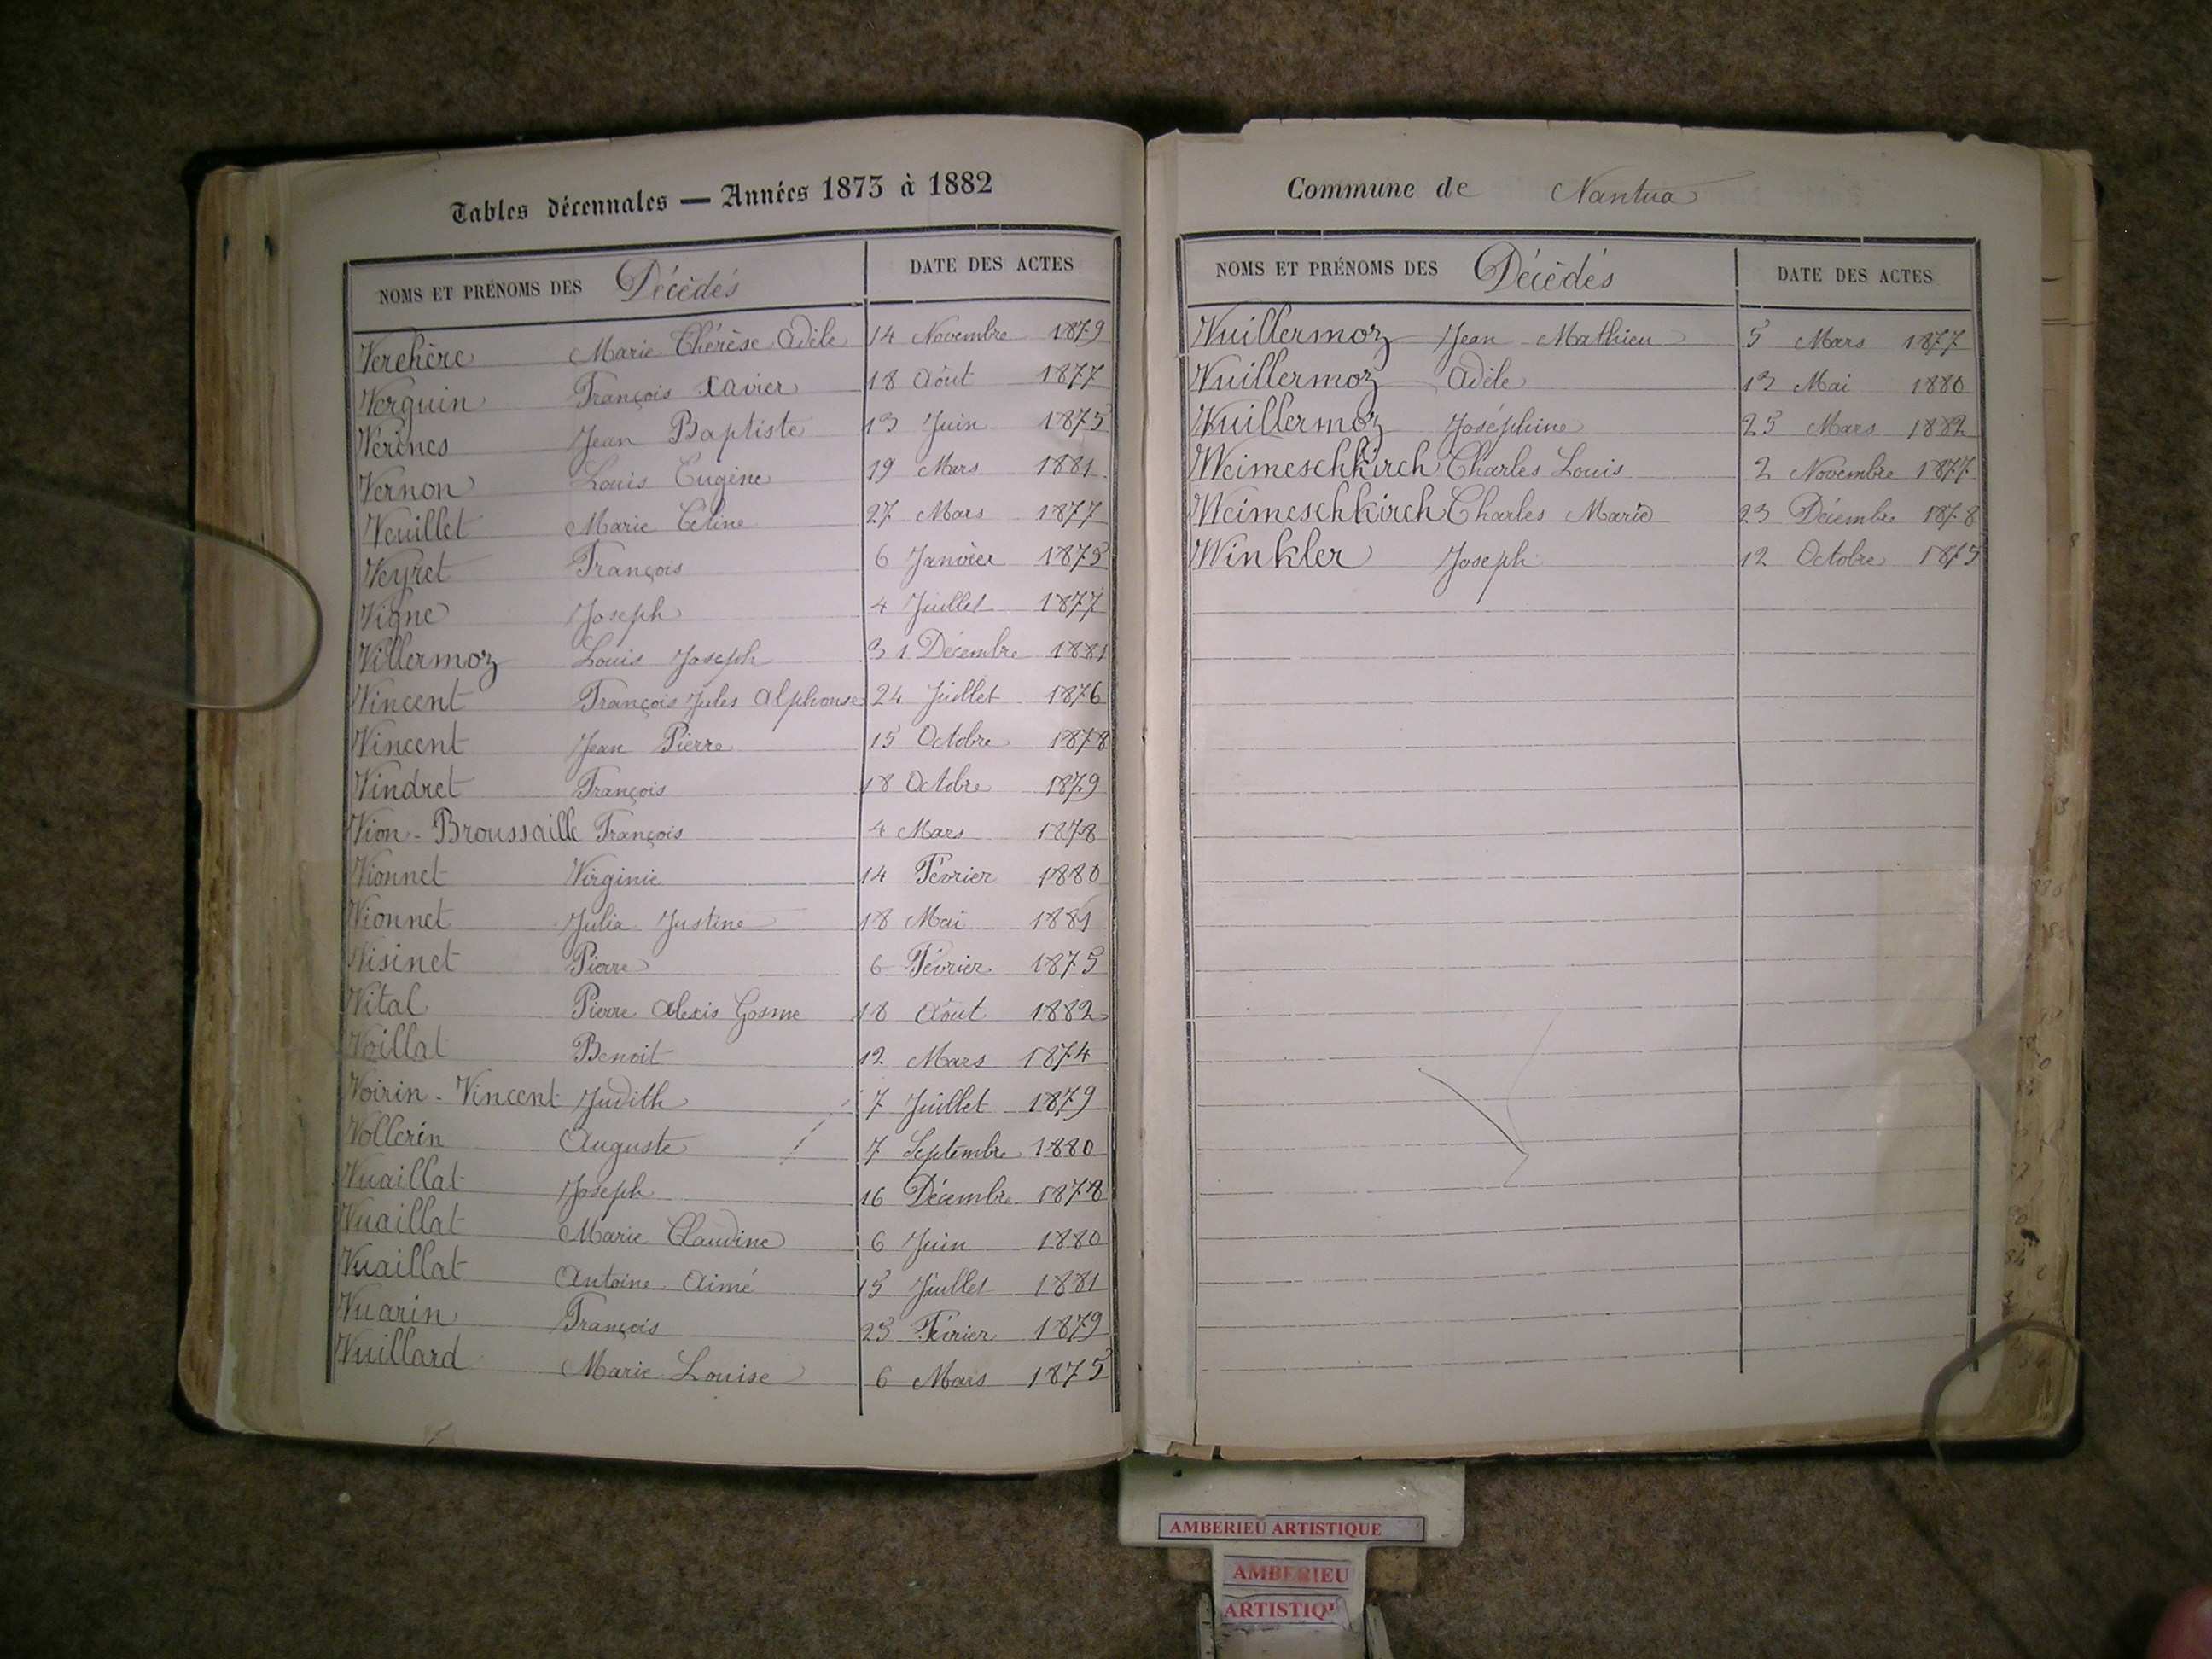 Tables décennales — Années 1873 à 1882
NOMS ET PRÉNOMS DES Décèdés DATE DES ACTES
Verchère Marie Thérèse Adèle 14 Novembre 1879
Verguin François Xavier 18 Aout 1877
Verines Jean Baptiste 13 Juin 1875
Vernon Louis Eugène 19 Mars 1881
Veuillet Marie Celine 27 Mars 1877
Veyret François 6 Janvier 1875
Vigne Joseph 4 Juillet 1877
Villermoz Louis Joseph 31 Décembre 1881
Vincent François Jules Alphonse 24 Juillet 1876
Vincent Jean Pierre 15 Octobre 1878
Vindret François 18 Octobre 1879
Vion - Broussaille François 4 Mars 1878
Vionnet Virginie 14 Février 1880
Vionnet Julia Justine 18 Mai 1881
Visinet Pierre 6 Février 1875
Vital Pierre Alexis Cosme 18 Aout 1882
Voillat Benoit 12 Mars 1874
Voirin - Vincent Judith 7 Juillet 1879
Vollerin Auguste 7 Septembre 1880
Vuaillat Joseph 16 Décembre 1878
Vuaillat Marie Claudine 6 Juin 1880
Vuaillat Antoine Aimé 15 Juillet 1881
Vuarin François 23 Février 1879
Vuillard Marie Louise 6 Mars 1875
Commune de Nantua
NOMS ET PRÉNOMS DES Décèdés DATE DES ACTES
Vuillermoz Jean Mathieu 5 Mars 1877
Vuillermoz Adèle 13 Mai 1880
Vuillermoz Joséphine 25 Mars 1882
Weimeschkirch Charles Louis 2 Novembre 1877
Weimeschkirch Charles Marie 23 Décembre 1878
Winkler Joseph 12 Octobre 1875
AMBERIEU ARTISTIQUE
AMBERIEU
ARTISTIQU